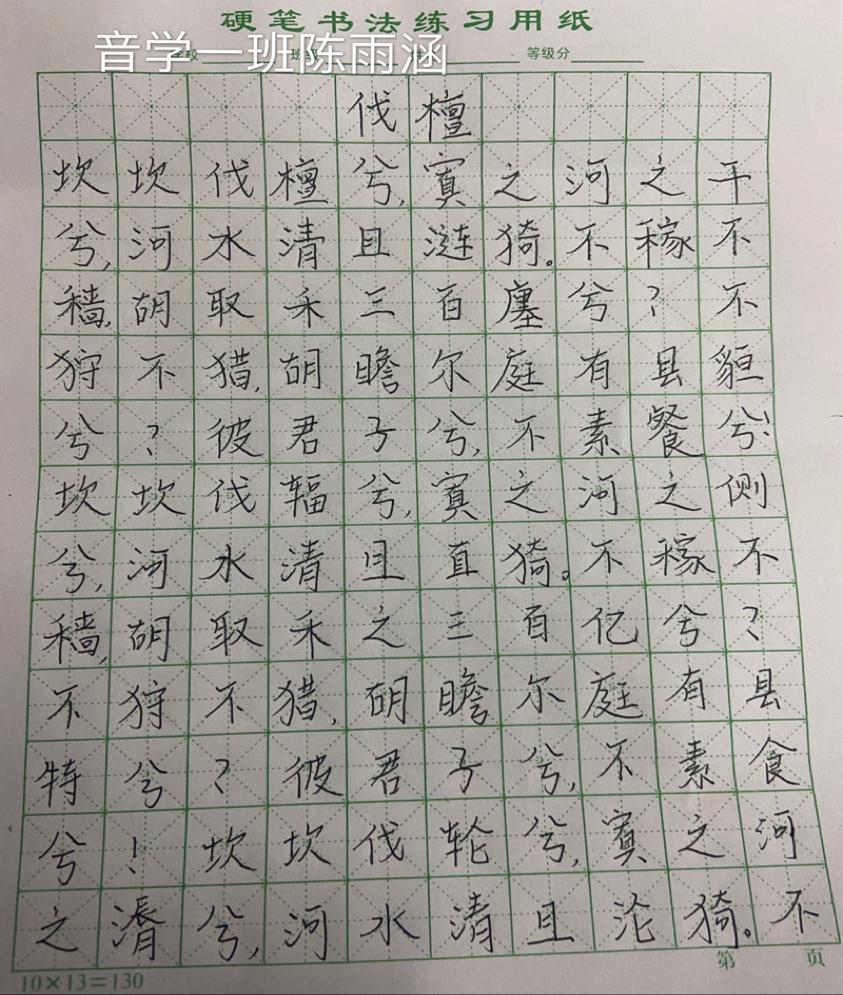 硬笔书法练习用纸
音学一班陈雨涵
等级分
伐檀
坎坎伐檀兮,寘之河之干
兮,河水清且涟猗。不稼不
穑,胡取禾三百廛兮?不
狩不猎,胡瞻尔庭有县貆
兮?彼君子兮,不素餐兮!
坎坎伐辐兮,寘之河之侧
兮,河水清且直猗。不稼不
穑,胡取禾之三百亿兮?
不狩不猎,胡瞻尔庭有县
特兮?彼君子兮,不素食
兮!坎坎伐轮兮,寘之河
之漘兮,河水清且沦猗。不
第 页
10×13=130